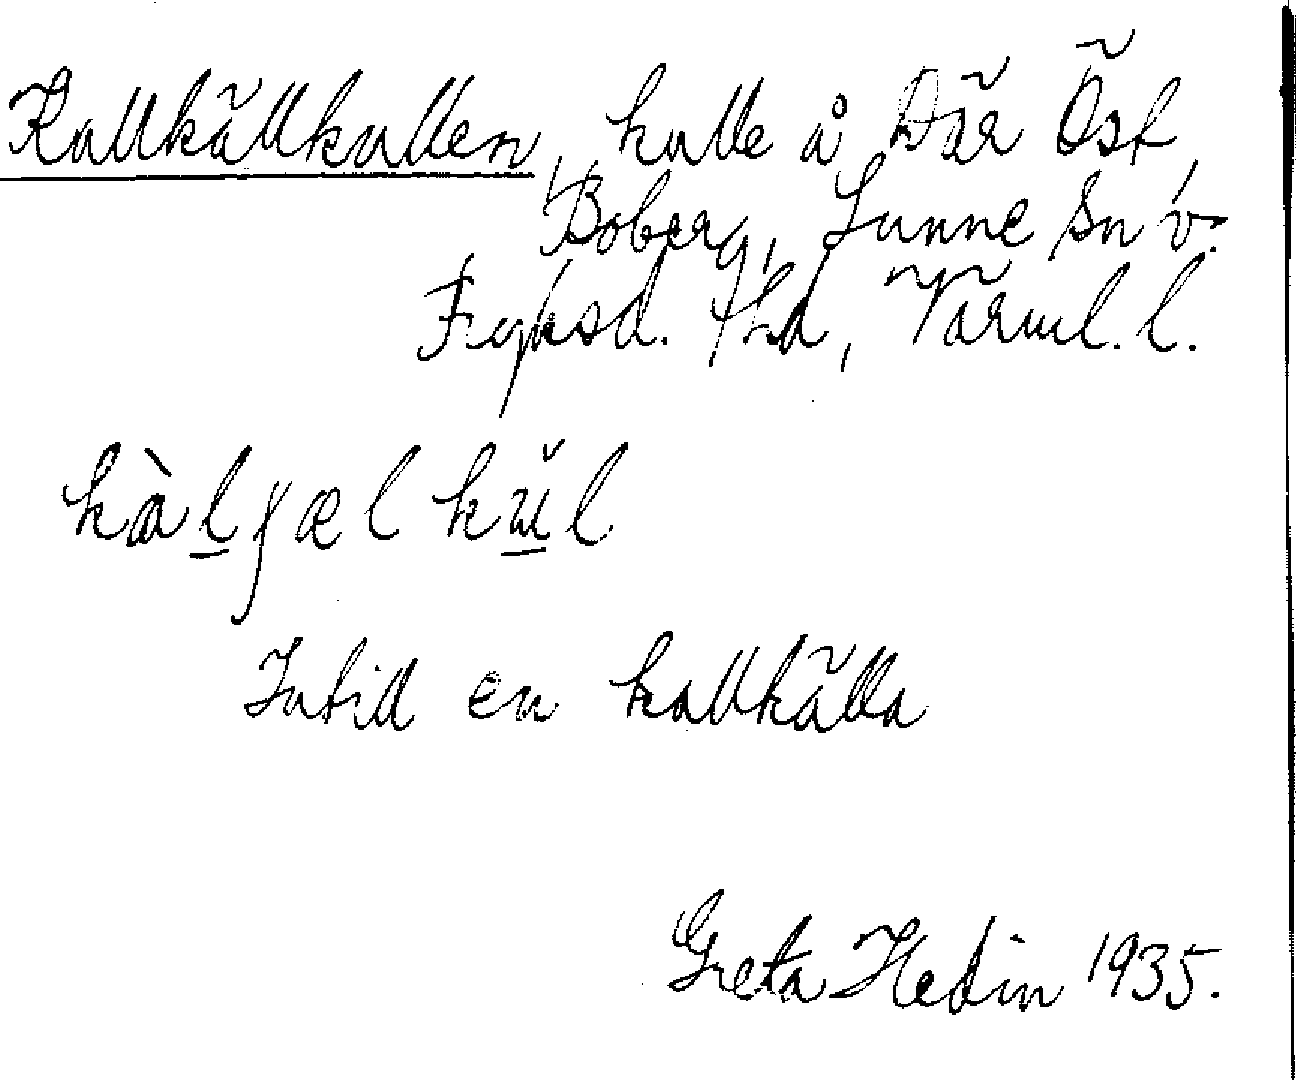 Kallkällkullen, kulle å Där Öst,
Boberg, Sunne sn v.
Fryksd. hd, Värml. l.
kàlʃæl kŭl
Intill en kallkälla
Greta Hedin 1935.